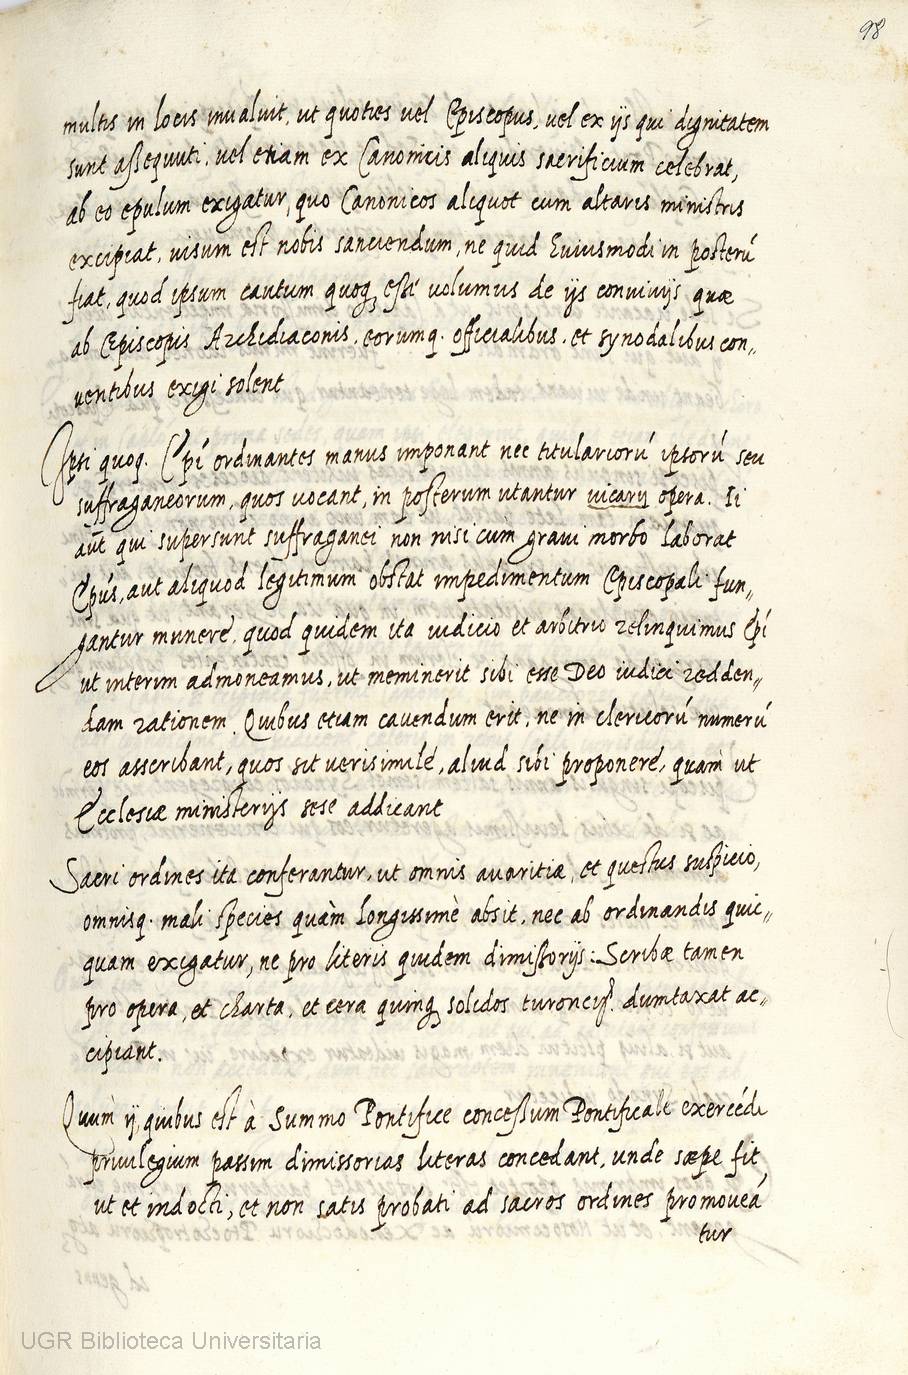 98
multis in locis inualuit, ut quoties uel Episcopus, uel ex ijs qui dignitatem
sunt assequuti, uel etiam ex Canonicis aliquis sacrificium celebrat,
ab eo epulum exigatur, quo Canonicos aliquot cum altaris ministris
excipiat, uisum est nobis sanciendum, ne quid huiusmodi in posterú
fiat, quod ipsum cautum quoq, esse uolumus de ijs conuiuijs quæ
ab Episcopis Archidiaconis, eorumq. officialibus, et synodalibus con„
uentibus exigi solent
Ipsi quoq. Epí ordinantes manus imponant nec titulariorú ipsorú seu
suffraganeorum, quos uocant, in posterum utantur uicarij opera. Ii
aút qui supersunt suffraganei non nisi cum graui morbo laborat
Epús, aut aliquod legitimum obstat impedimentum Episcopali fun„
gantur munere, quod quidem ita iudicio et arbitrio relinquimus Epí
ut interim admoneamus, ut meminerit sibi esse Deo iudici redden„
dam rationem. Quibus etiam cauendum erit, ne in clericorú numerú
eos asscribant, quos sit uerisimile, aliud sibi proponere, quàm ut
Ecclesiæ ministerijs sese addicant
Sacri ordines ita conferantur, ut omnis auaritiæ, et questus suspicio,
omnisq. mali species quàm longissimè absit, nec ab ordinandis quic„
quam exigatur, ne pro literis quidem dimissorijs: Scribæ tamen
pro opera, et charta, et cera quinq, solidos turonen. dumtaxat ac„
cipiant.
Quum ij, quibus est à Summo Pontifice concessum Pontificale exercédi
priuilegium passim dimissorias literas concedant, unde sæpe fit,
ut et indocti, et non satis probati ad sacros ordines promoueá
tur
UGR Biblioteca Universitaria